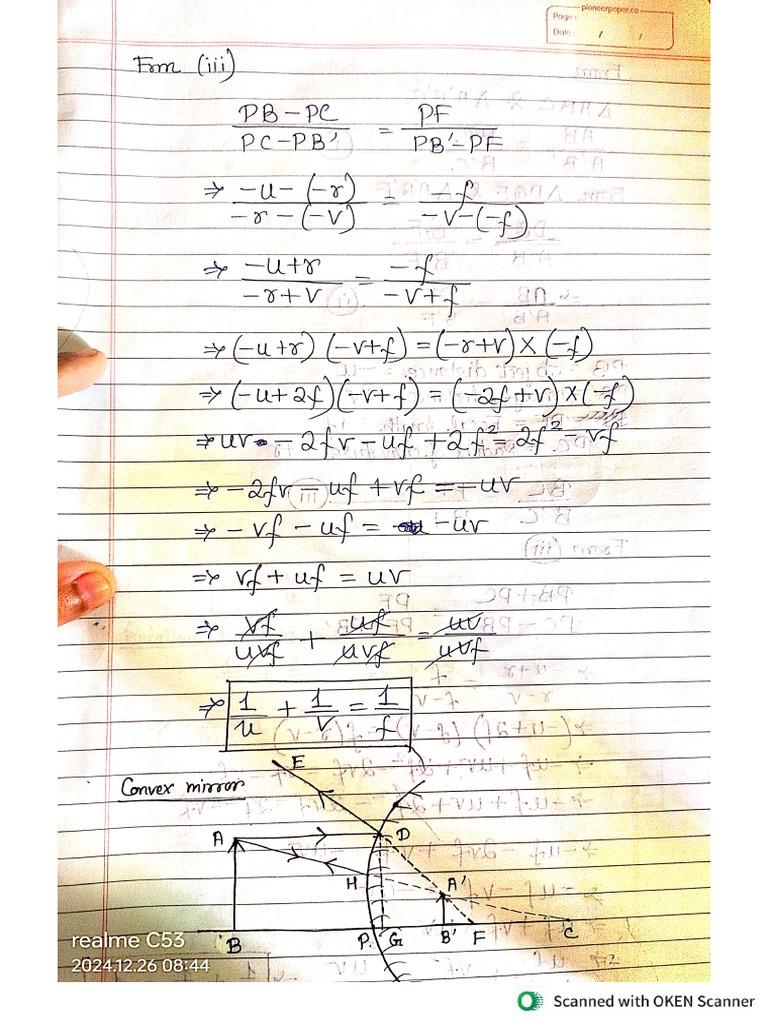 pioneerpaper.co
Page :
Date : / /
From (iii)
PB-PC / PC-PB' = PF / PB'-PF
⇒ -u-(-r) / -r-(-v) = -f / -v-(-f)
⇒ -u+r / -r+v = -f / -v+f
⇒ (-u+r) (-v+f) = (-r+v) × (-f)
⇒ (-u+2f) (-v+f) = (-2f+v) × (-f)
⇒ uv - 2fv - uf + 2f² = 2f² - vf
⇒ -2fv - uf + vf = -uv
⇒ -vf - uf = -uv
⇒ vf + uf = uv
⇒ vf / uvf + uf / uvf = uv / uvf
⇒ 1/u + 1/v = 1/f
Convex mirror
E
A D
H A'
B P G B' F C
realme C53
2024.12.26 08:44
Scanned with OKEN Scanner